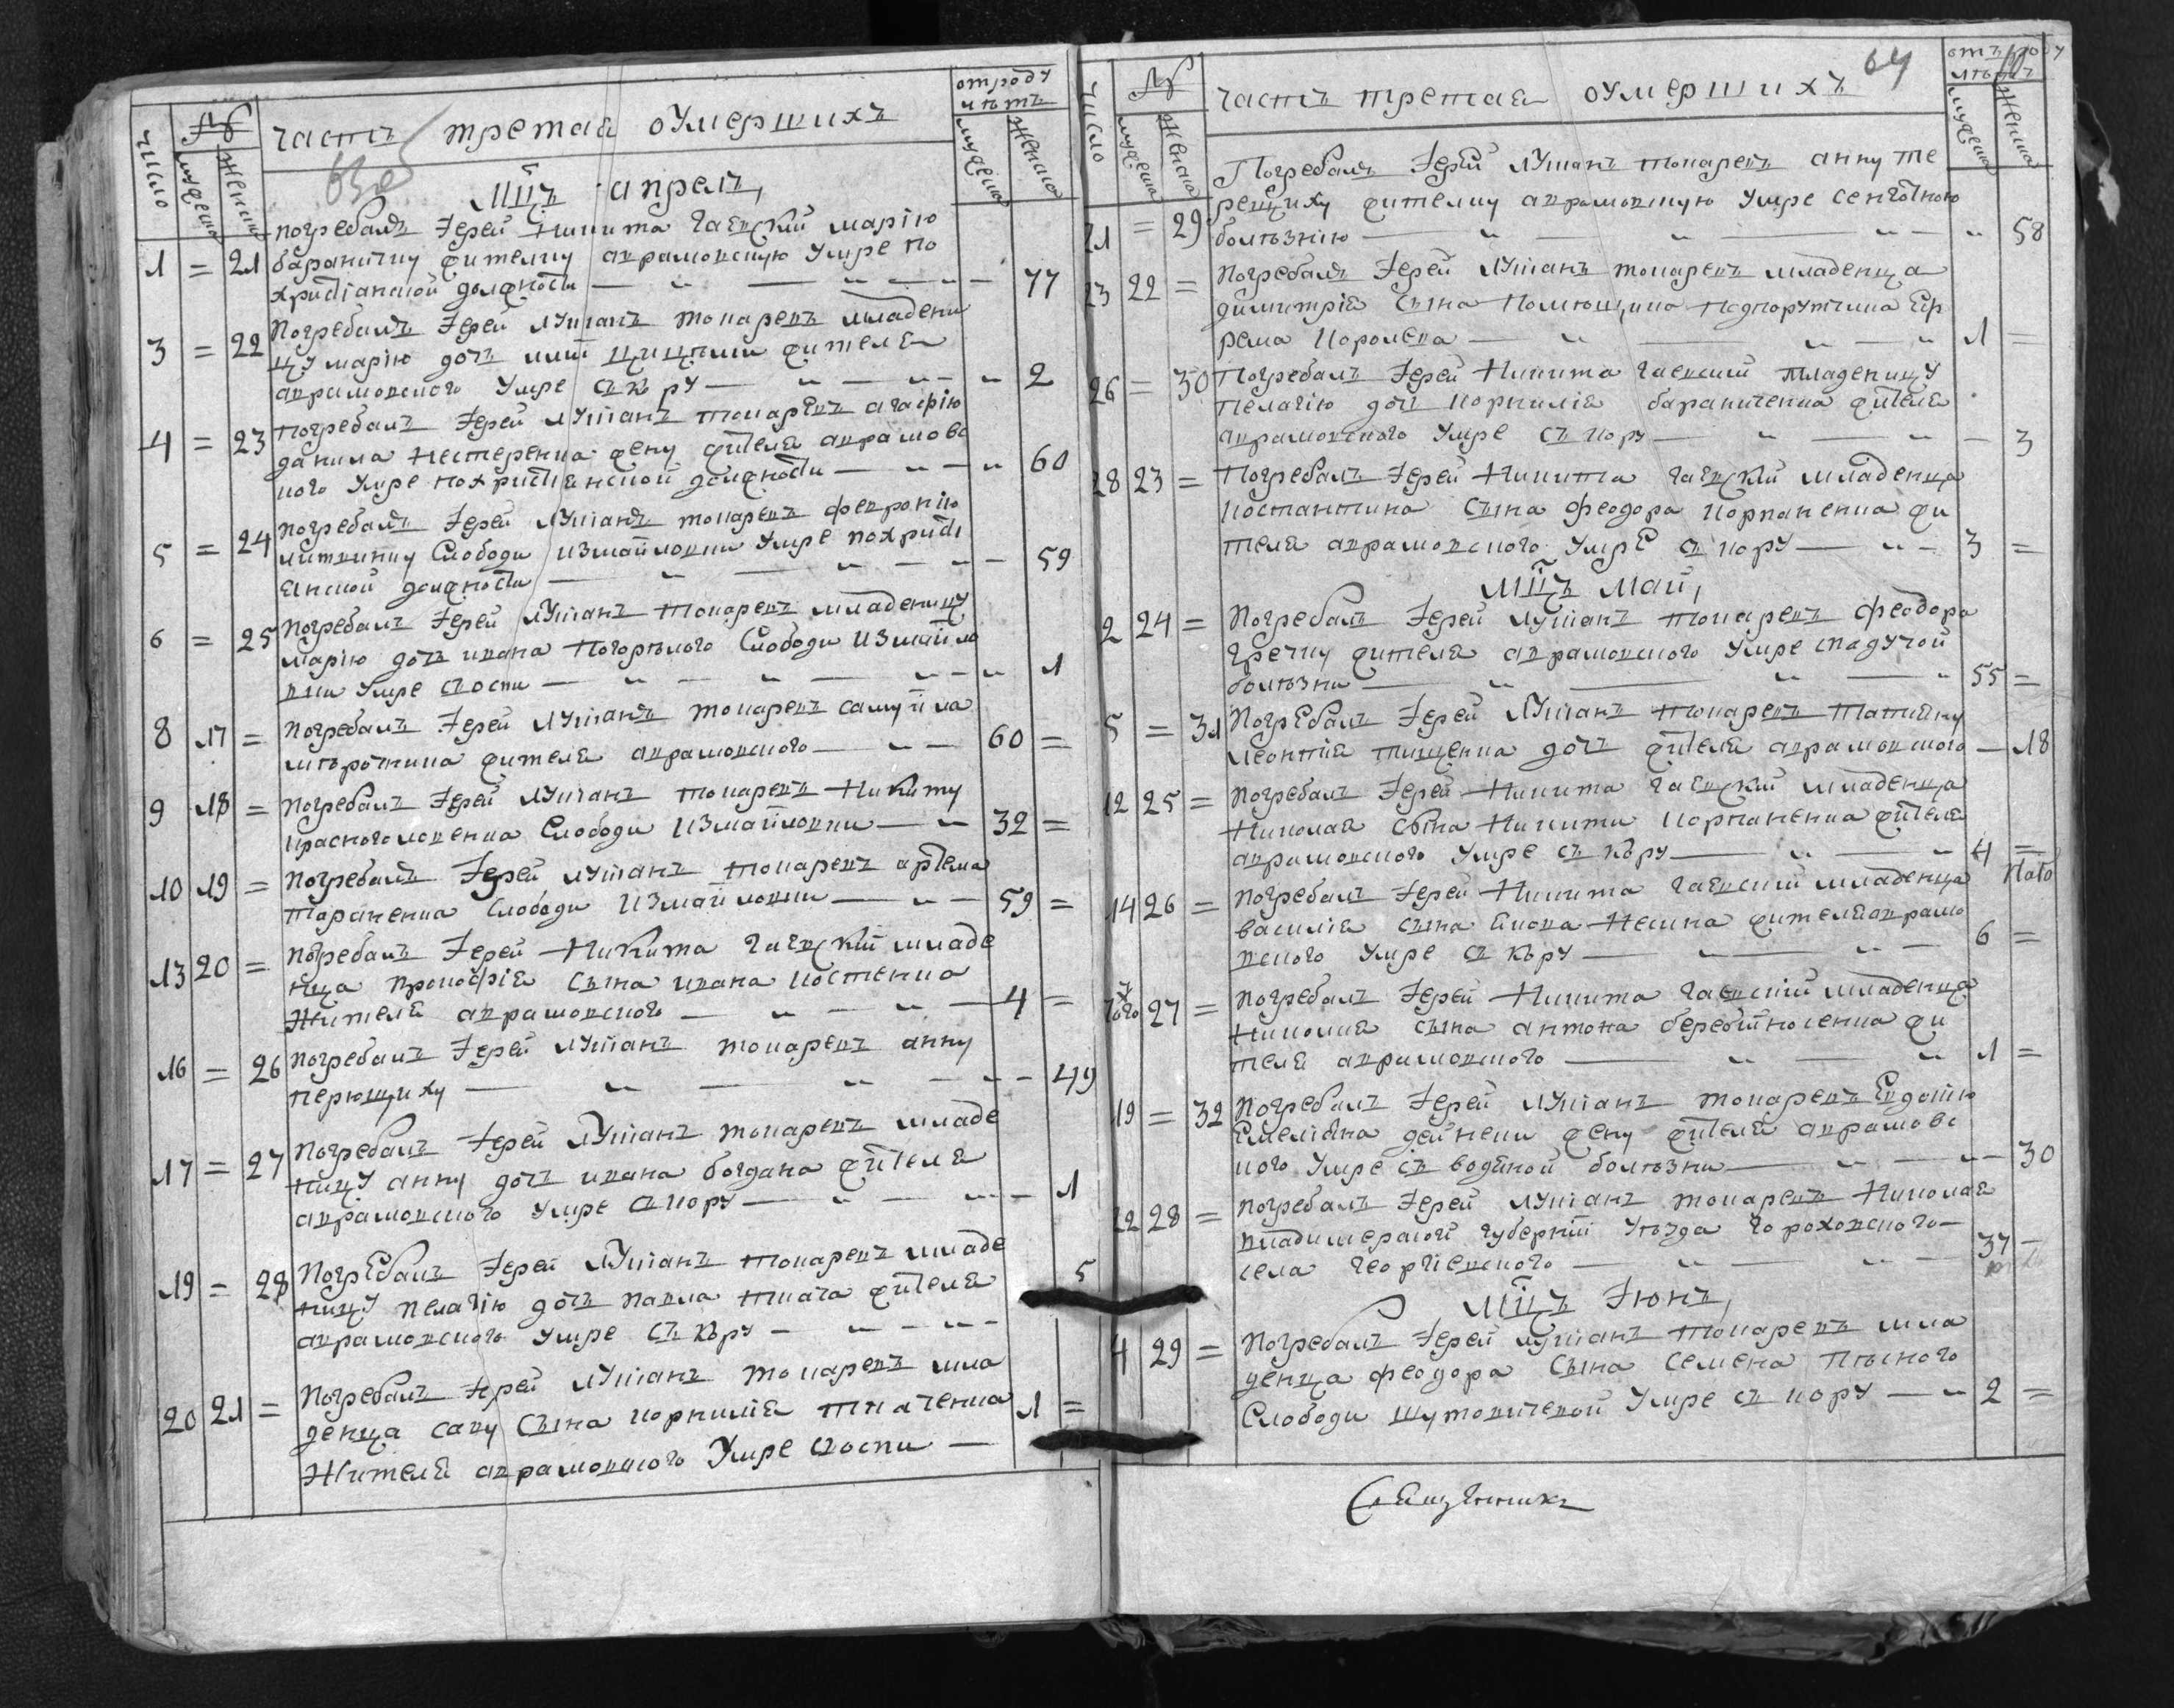 число
№
мужеска
женска
часть третая оумершихъ
отроду
лѣтъ
мужеска
женска
мц҃ъ апрель,
погребалъ Іерей Никита гаевскій марію
1 = 21 бараничку жителку аврамовскую умре по
христіанской должности 77
Погребалъ Іерей лукіанъ токаревъ младени
3 = 22 цу марію дочь жителя
аврамовского умре съ кору 2
погребалъ Іерей лукіанъ токаревъ агафію
4 = 23 данила нестеренка жену жителя аврамовс
кого умре похристианской должности 60
погребалъ Іерей лукіанъ токаревъ февронію
5 = 24 литвинку Слободи измайловки умре похристі
янской должности 59
Погребалъ Іерей лукіанъ токаревъ младеницу
6 = 25 марію дочь ивана погорѣлого Слободи измайло
вки умре съоспи 1
8 17 = Погребалъ Іерей лукіанъ токаревъ самуйла
мѣрочника жителя аврамовского 60 =
9 18 = погребалъ Іерей лукіанъ токаревъ Никиту
красноголовенка Слободи Измайловки 32 =
10 19 = погребалъ Іерей лукіанъ токаревъ артема
тараненка Слободи Измайловки 59 =
13 20 = погребалъ Іерей Никита гаевскій младе
нца прокофія сына ивана костенка
Жителя аврамовского 4 =
16 = 26 погребалъ Іерей лукіанъ токаревъ анну
перющиху 49
Погребалъ Іерей лукіанъ токаревъ младе
17 = 27 ницу анну дочь ивана богдана жителя
аврамовского умре съкору 1
Погребалъ Іерей лукіанъ токаревъ младе
19 = 28 ницу пелагію дочь павла ткача жителя 5
аврамовского умре съ кору
Погребалъ Іерей лукіанъ токаревъ мла
20 21 = денца саву Сына корнилія ткаченка 1 =
Жителя аврамовского Умре съоспи
число
№
мужеска
женска
часть третая оумершихъ
64
отъ роду
лѣтъ
мужеска
женска
Погребалъ Іерей лукіанъ токаревъ анну те
21 = 29 рещиху жителку аврамовскую умре
болѣзнію 58
23 22 = Погребалъ Іерей лукіанъ токаревъ младенца
димитрія Сына Полкового Подпорутчика Еф
рема Королева 1 =
26 = 30 Погребалъ Іерей Никита гаевскій младеницу
пелагію дочь корнилія бараниченка жителя
аврамовского умре съ кору 3
28 23 = Погребалъ Іерей Никита гаевскій младенца
костантина Сына феодора корпаненка жи
теля аврамовского умре съ кору 3 =
мц҃ъ май,
2 24 = Погребалъ Іерей лукіанъ токаревъ феодора
гречку жителя аврамовского умре спадучой
болѣзни 55 =
5 = 31 Погребалъ Іерей лукіанъ токаревъ татияну
леонтія тищенка дочь жителя аврамовского 18
12 25 = Погребалъ Іерей Никита гаевскій младенца
Николая сына Никити корпаненка жителя
аврамовского умре съ кору 4 =
14 26 = Погребалъ Іерей Никита гаевскій младенца
василія сына якова жителя аврамо
вского умре съ кору 6 =
того 27 = Погребалъ Іерей Никита гаевскій младенца
Николая сына антона жи
теля аврамовского 1 =
19 = 32 Погребалъ Іерей лукіанъ токаревъ Евдокію
Емеліяна дейнеки жену жителя аврамовс
кого умре съ водяной болѣзни 30
22 28 = погребалъ Іерей лукіанъ токаревъ Николая
владимерской губерніи уѣзда гороховского
села георгіевского 37 =
мц҃ъ Іюнь,
4 29 = Погребалъ Іерей лукіанъ токаревъ мла
денца феодора Сына семена
Слободи умре съ кору 2 =
Священникъ